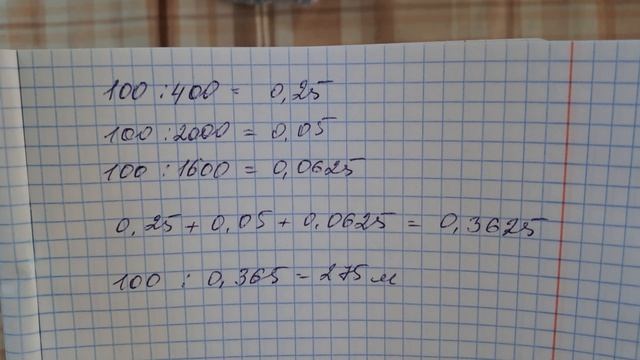 100 : 400 = 0,25
100 : 2000 = 0,05
100 : 1600 = 0,0625
0,25 + 0,05 + 0,0625 = 0,3625
100 : 0,365 = 275 м